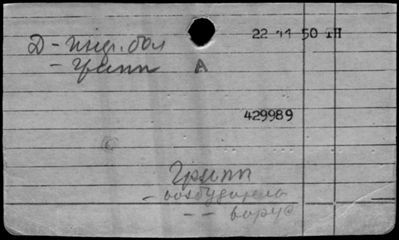 Д - инд. бол
22 11 50 ІН
- грипп А
429989
Грипп
- возбудитель
- - вирус